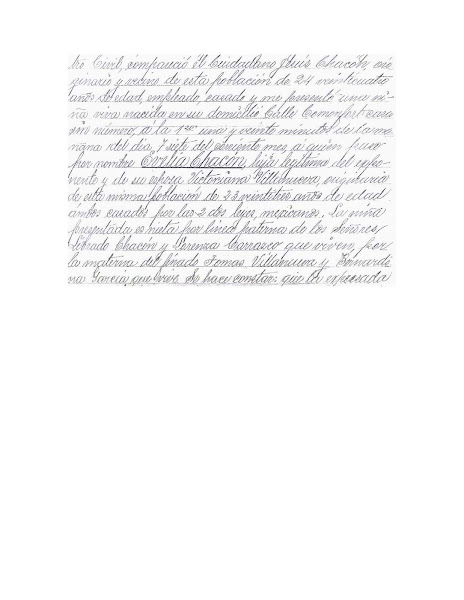 tro Civil, compareció el Ciudadano Luis Chacón ori
ginario y vecino de esta población de 24 veinticuatro
años de edad, empleado, casado y me presentó una ni-
ña viva nacida en su domicilio Calle Comonfort casa
sin número, a la 1 una y veinte minutos de la ma
ñana del día 7 siete del presente mes, a quien puso
por nombre Evelia Chacón, hija legítima del expo
nente y de su esposa Victoriana Villanueva, originaria
de esta misma población de 23 veintitrés años de edad
ambos casados por las 2 dos leyes, mexicanos. La niña
presentada es nieta por línea paterna de los señores
Librado Chacón y Carrasco que viven, por
la materna del finado Tomas Villanueva y Bernardi
na García que vive. Se hace constar: que la expresada